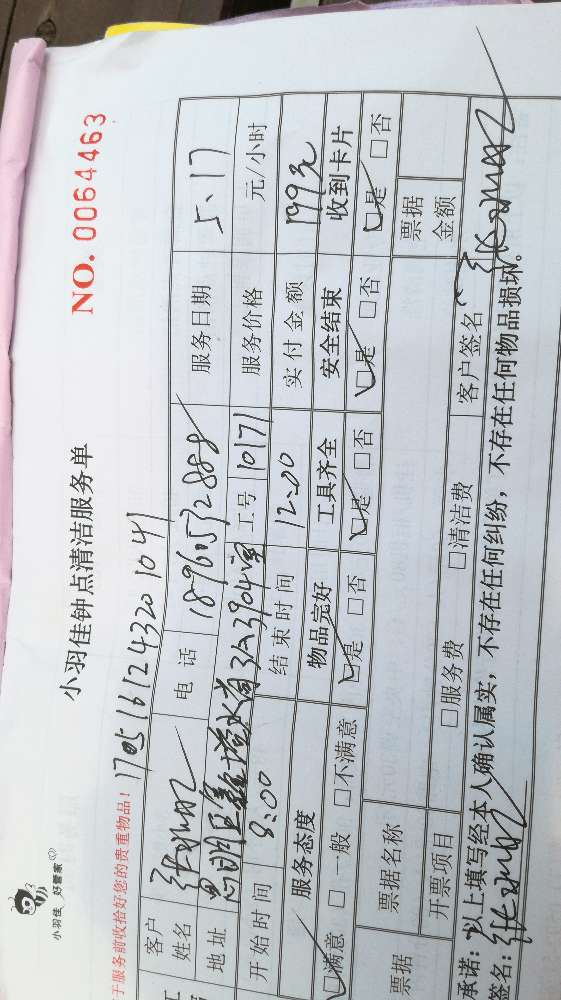 小羽佳 好管家
小羽佳钟点清洁服务单
NO. 0064463
于服务前收拾好您的贵重物品!
1705161243201041
客户姓名 电话 18961572888 服务日期 5.17
地址 思明区 3904 工号 10171 服务价格 元/小时
开始时间 8:00 结束时间 12:00 实付金额 199元
服务态度 物品完好 工具齐全 安全结束 收到卡片
☑满意 □一般 □不满意 ☑是 □否 ☑是 □否 ☑是 □否 ☑是 □否
票据 票据名称 票据金额
开票项目 □服务费 □清洁费 客户签名
承诺:以上填写经本人确认属实,不存在任何纠纷,不存在任何物品损坏。
签名: